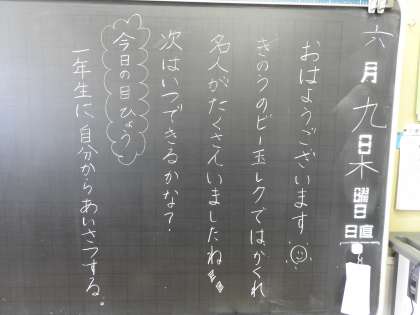 六月九日木曜日
日直
おはようございます
きのうのビー玉レクではかくれ
名人がたくさんいましたね
次はいつできるかな?
今日の目ひょう
一年生に自分からあいさつする。